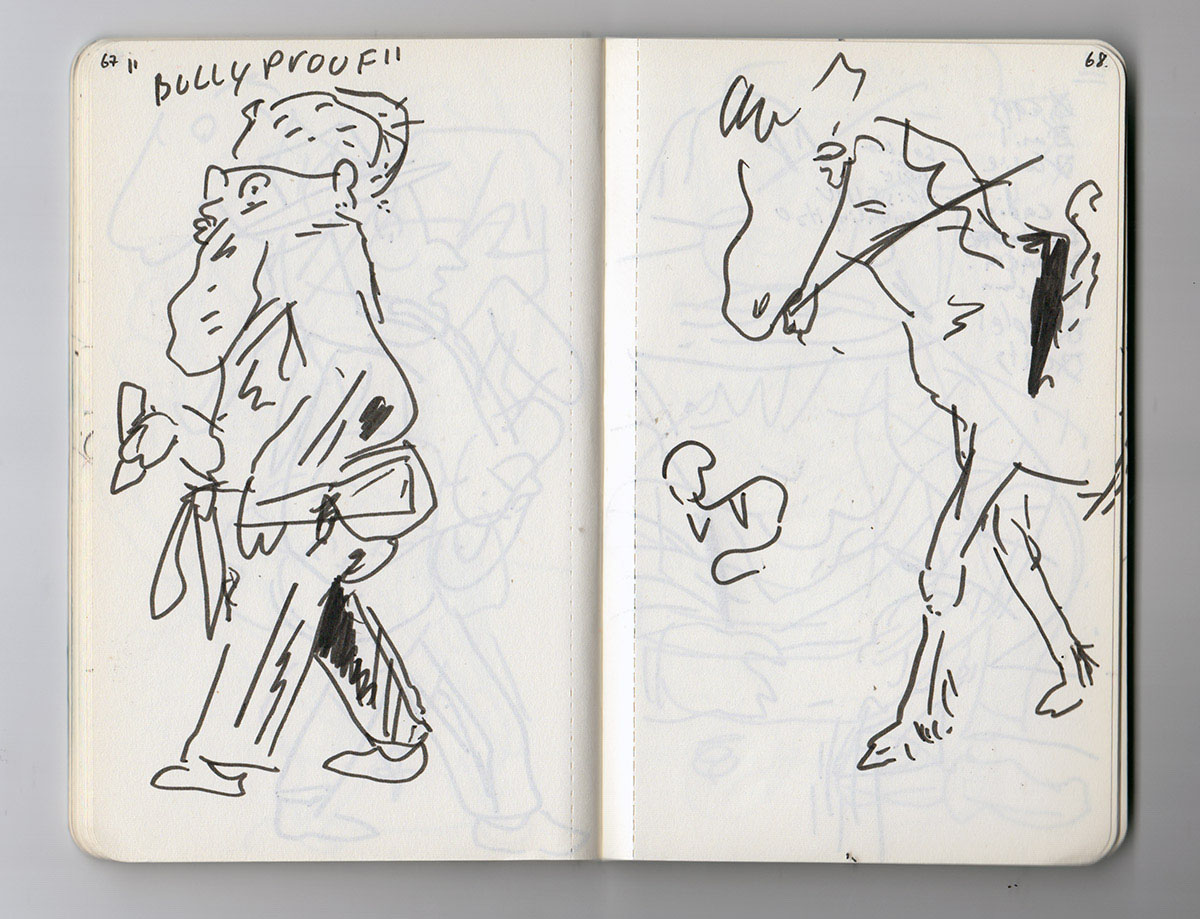 67
"BULLY PROUF"
68.